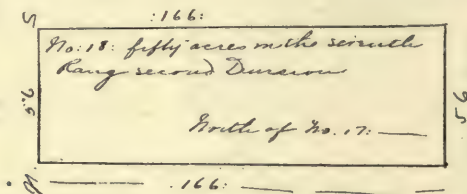 S :166:
No: 18: fifty acres in the seventh
Rang second Division
North of No. 17:
.166: